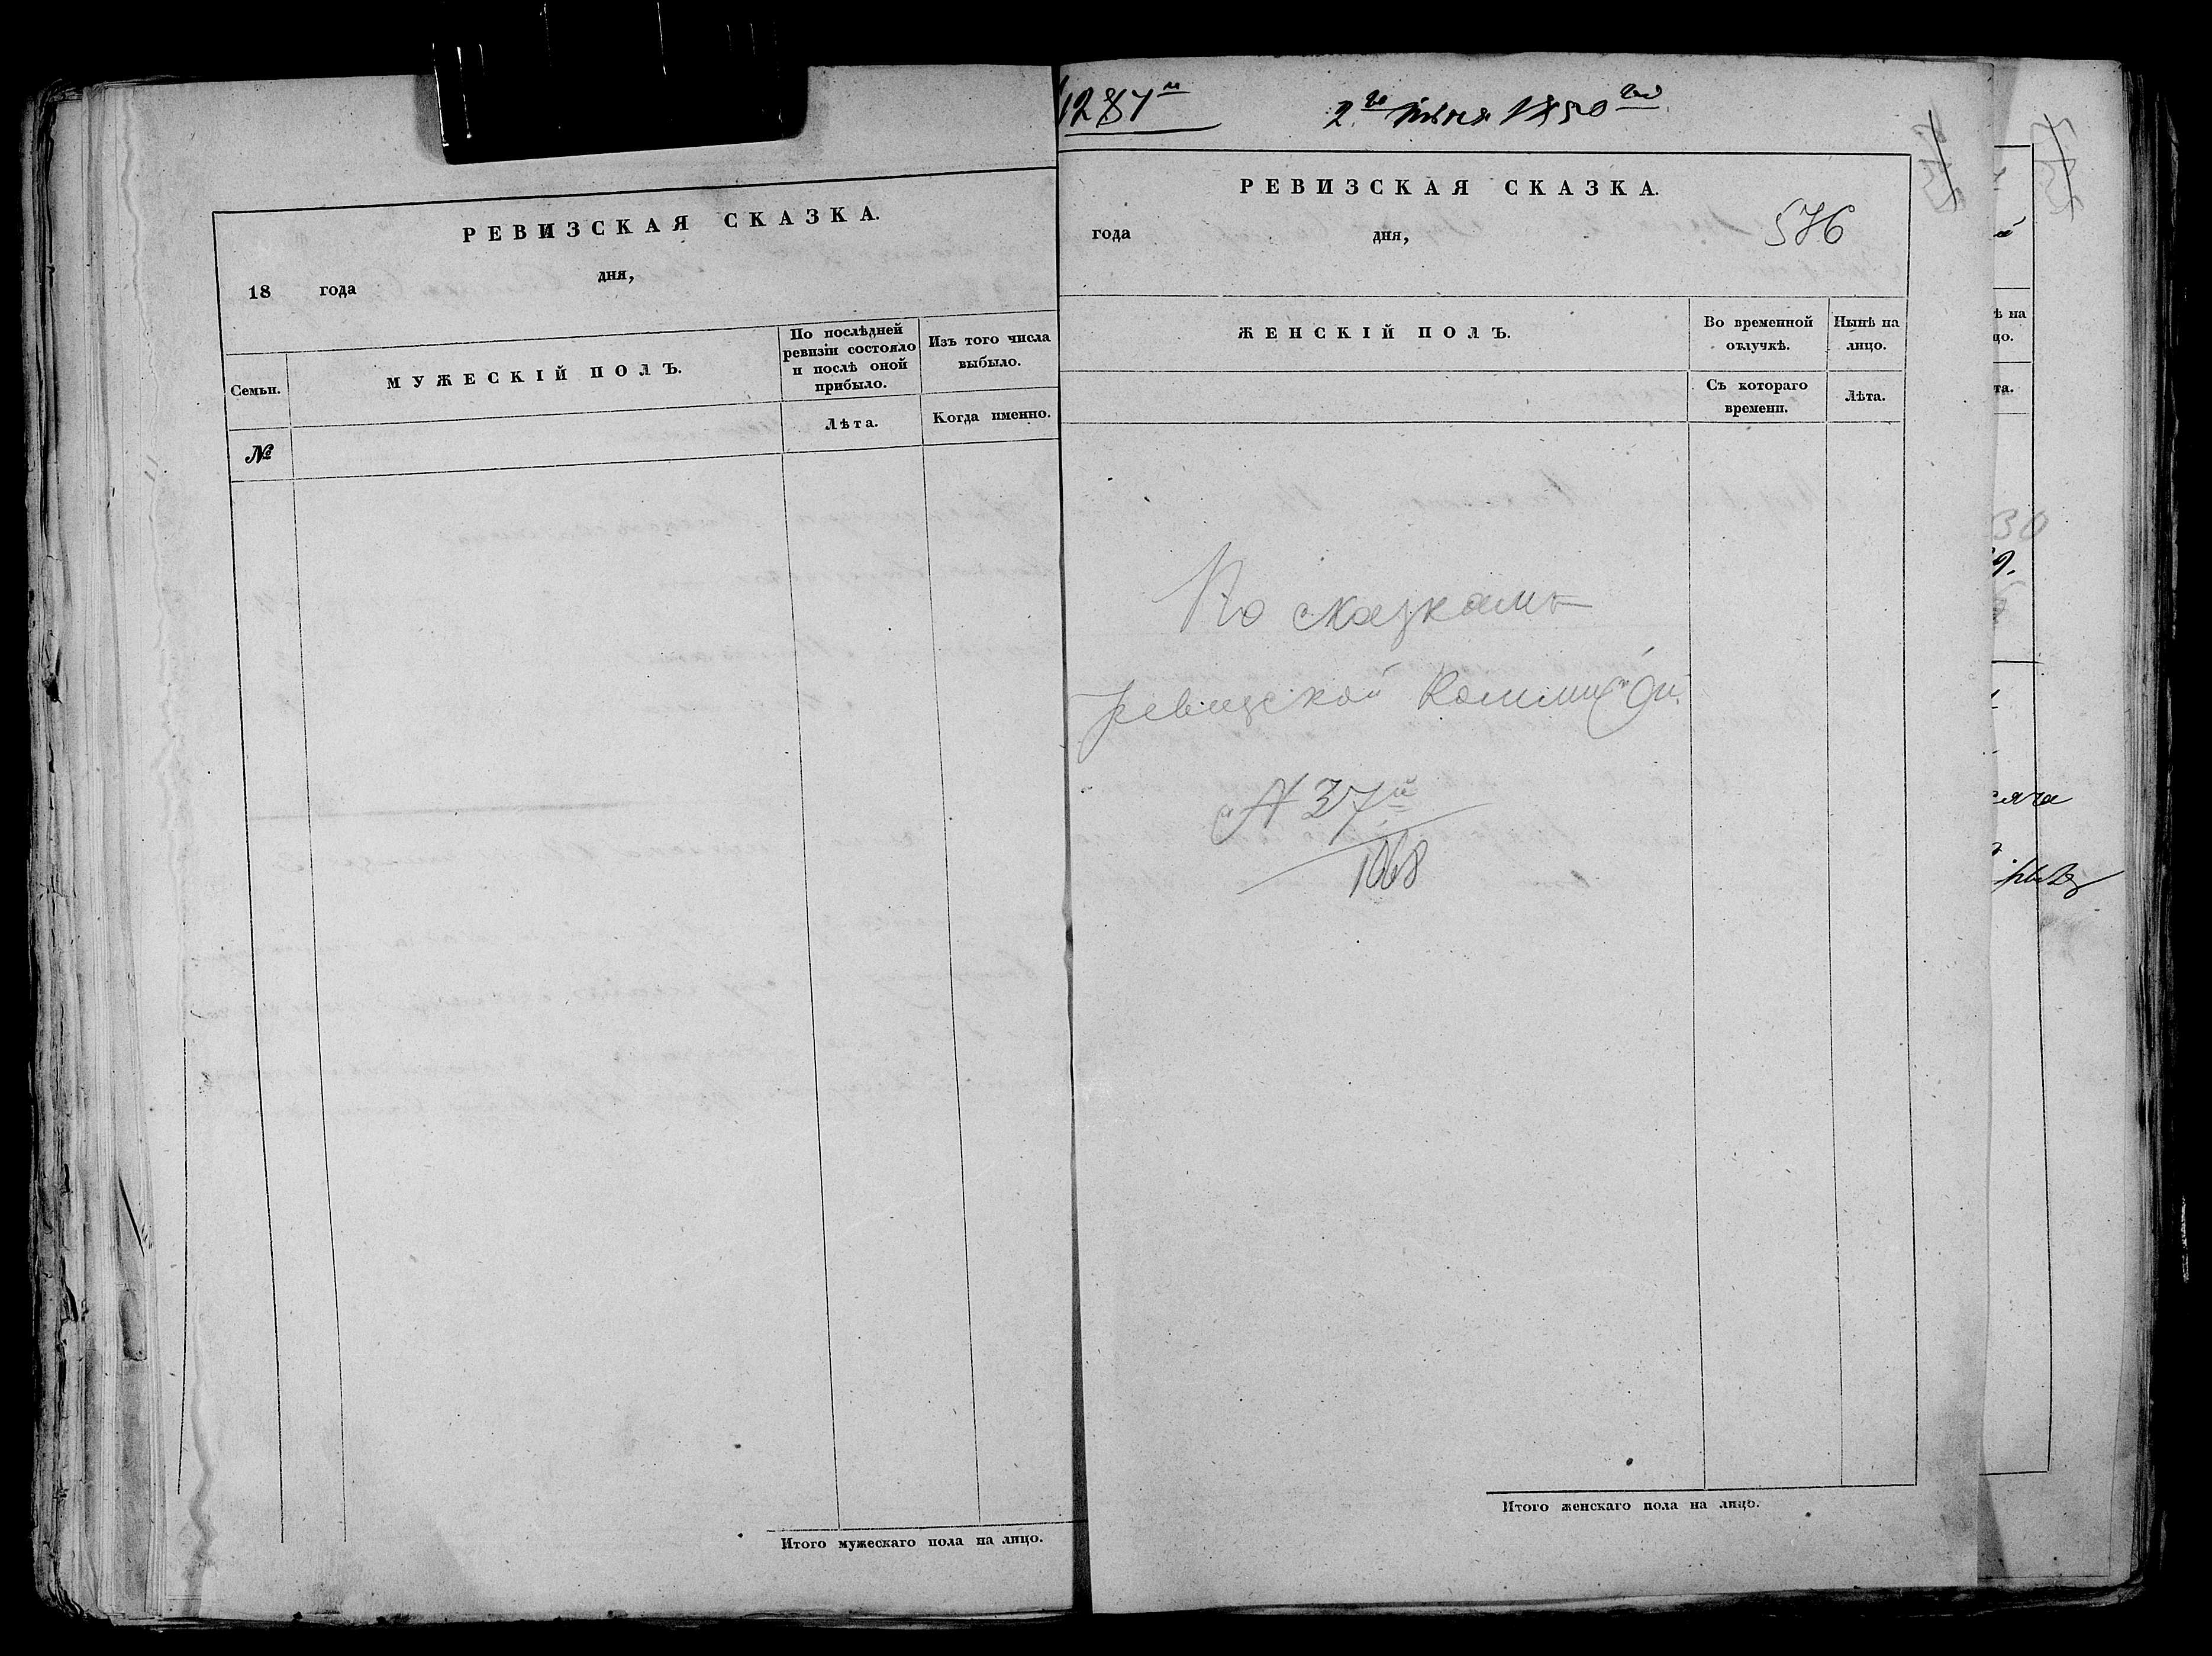 РЕВИЗСКАЯ СКАЗКА.
18 года дня,
Семьи.
МУЖЕСКІЙ ПОЛЪ.
По послѣдней ревизіи состояло и послѣ оной прибыло.
Изъ того числа выбыло.
Лѣта.
Когда именно.
№
Итого мужескаго пола на лицо.
2го Июня 1850 год
РЕВИЗСКАЯ СКАЗКА.
года дня,
576
ЖЕНСКІЙ ПОЛЪ.
Во временной отлучкѣ.
Нынѣ на лицо.
Съ котораго времени.
Лѣта.
По сказкамъ
ревизской Коммис
№ 37й
1068
Итого женскаго пола на лицо.